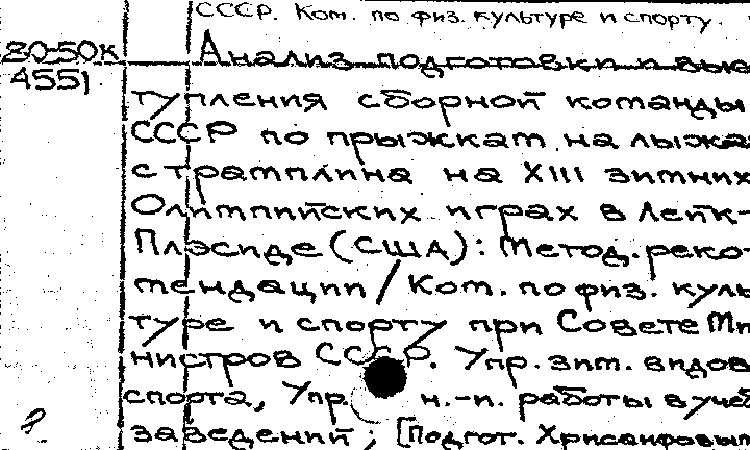 СССР. Ком. по физ. культуре и спорту.
80-50к Анализ подготовки и выс
4551
тупления сборной команды
СССР по прыжкам на лыжах
с трамплина на XIII зимних
Олимпийских играх в Лейк-
Плэсиде (США): Метод. реко-
мендации / Ком. по физ. куль
туре и спорту при Совете Ми
нистров СССР. Упр. зим. видов
спорта, Упр. н.-и. работы в учеб
заведений; [Подгот. Хрисанфовым